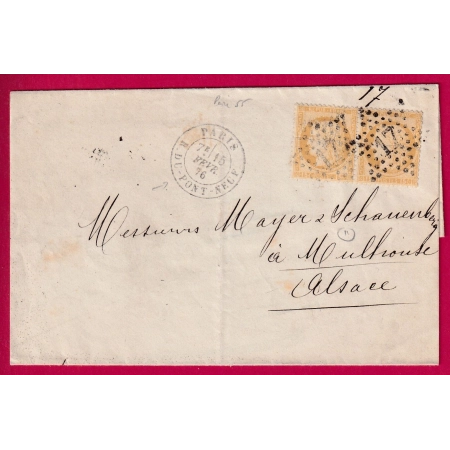 17
PARIS
15
FEVR
76
R. DU PONT-NEUF
17
17
Messieurs Mayer & Schauenberg
à Mulhouse
Alsace